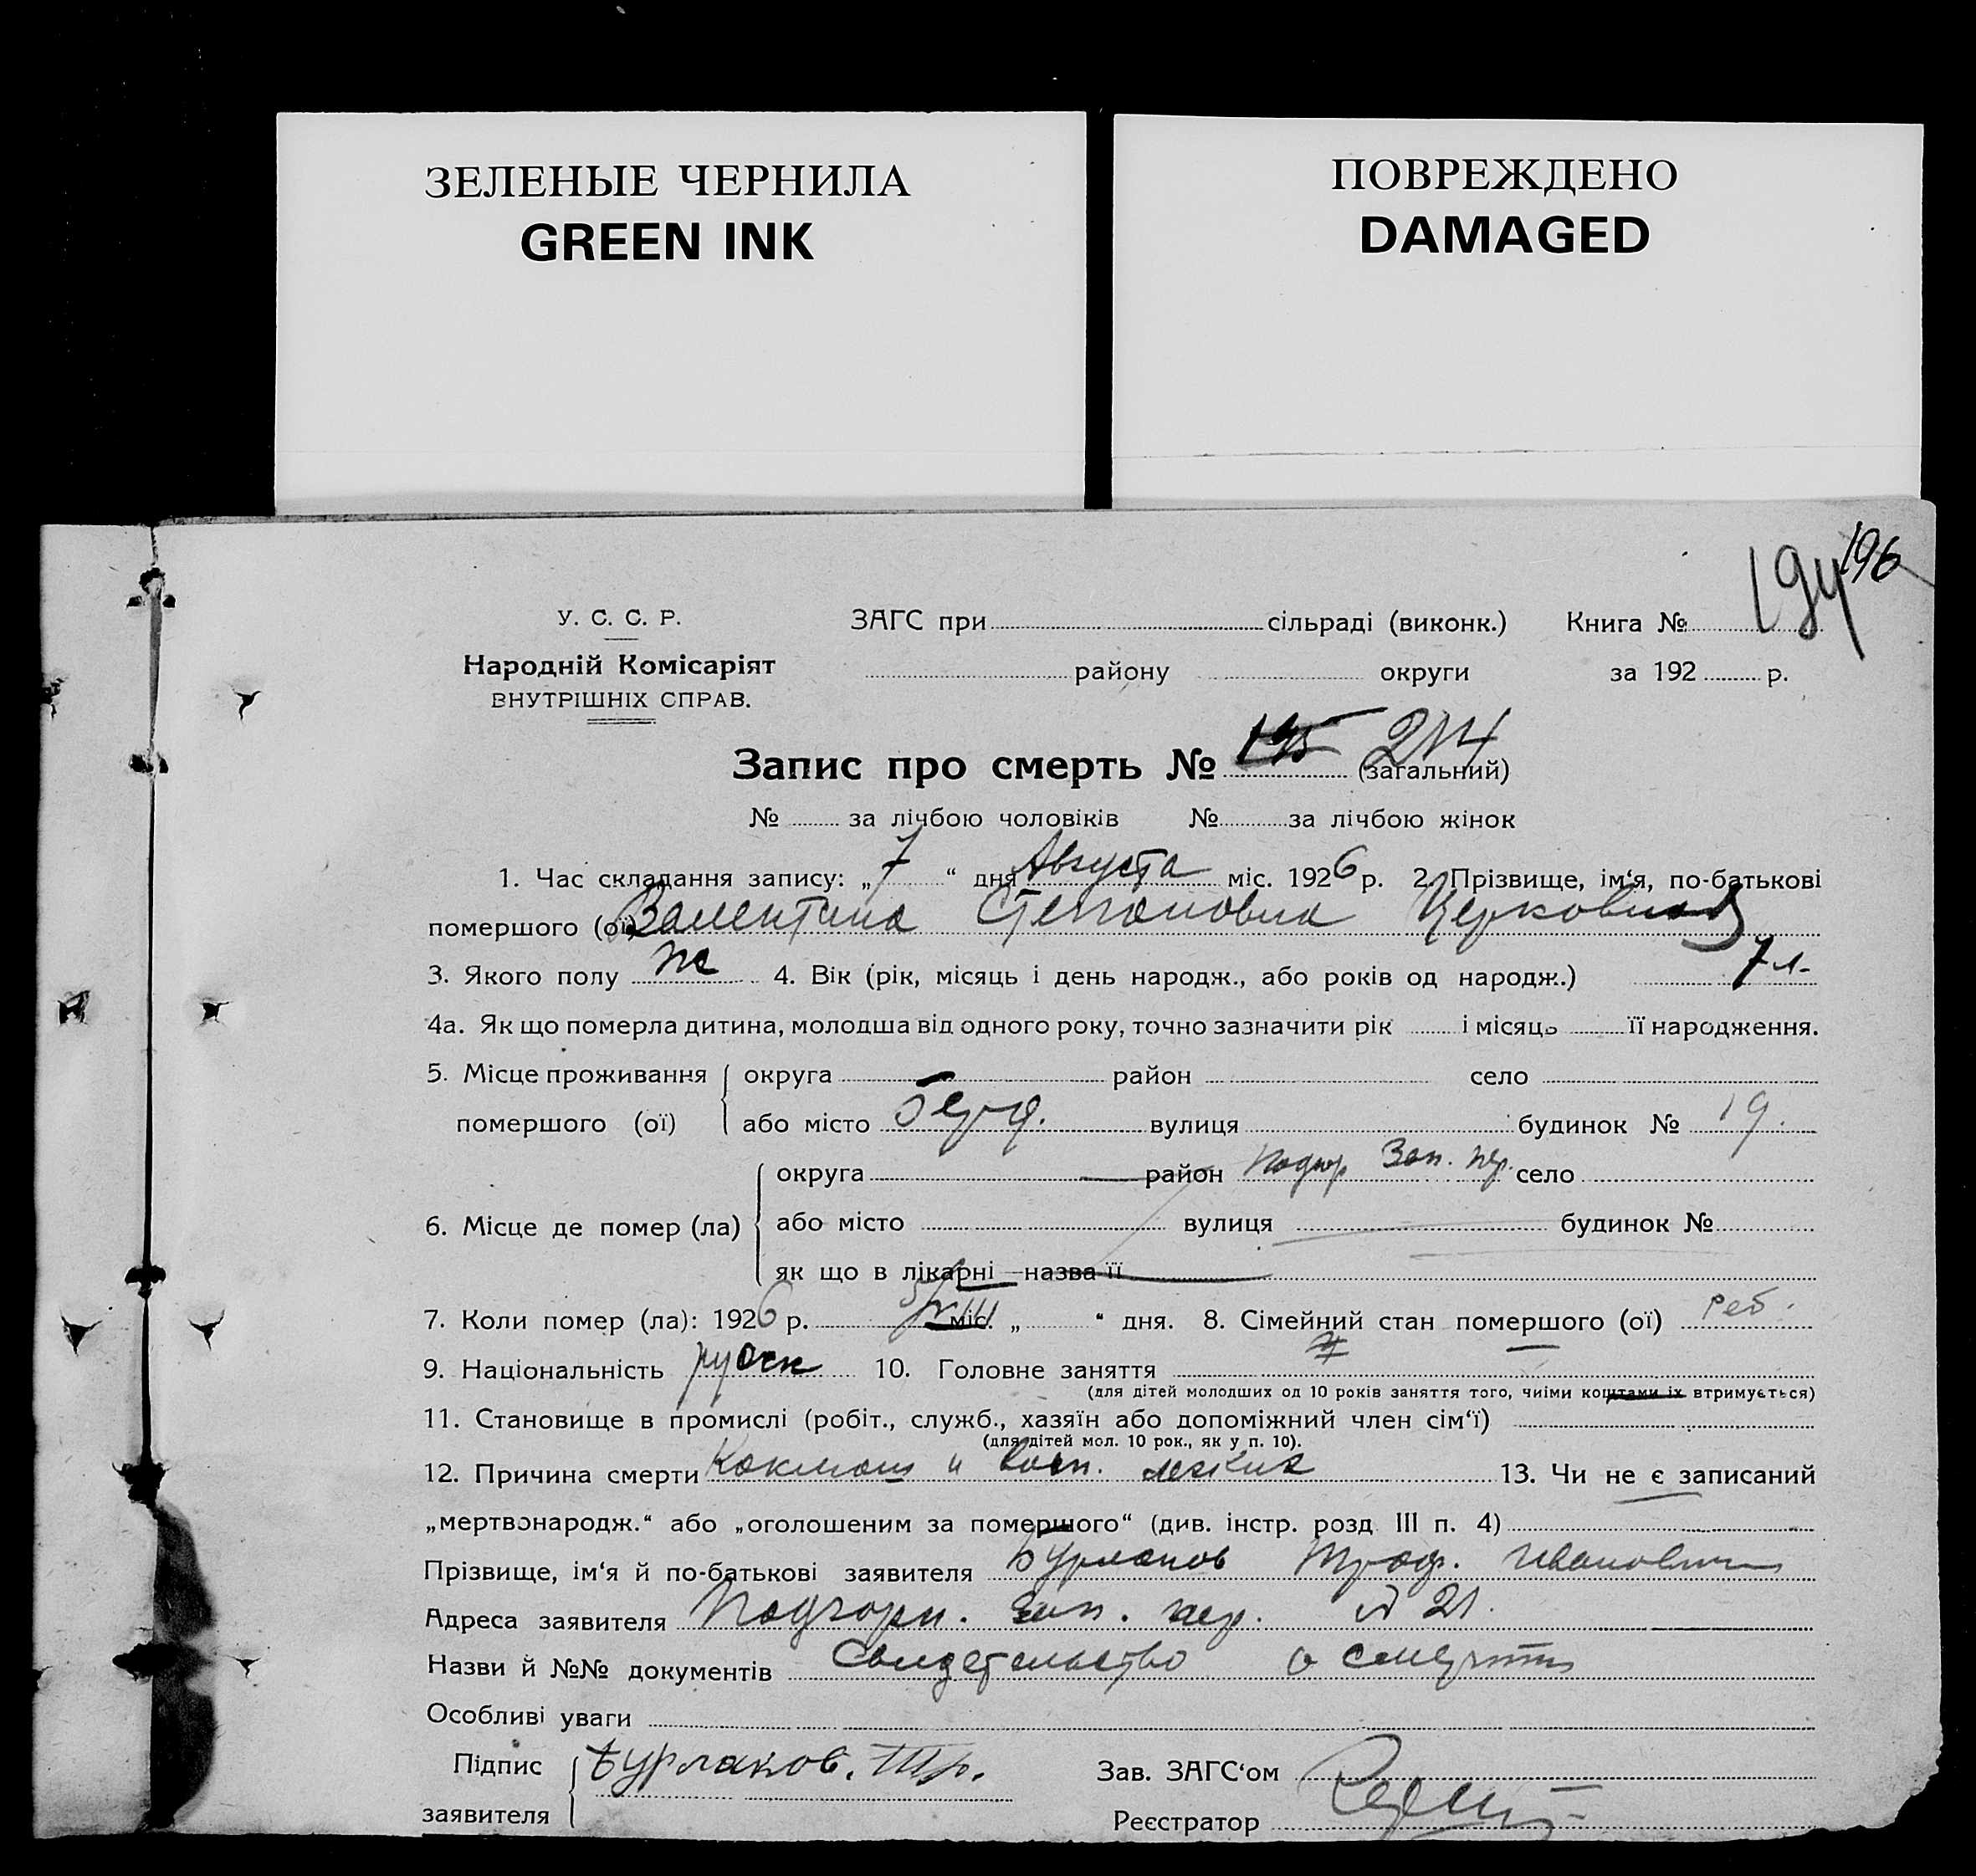 ЗЕЛЕНЫЕ ЧЕРНИЛА
GREEN INK
ПОВРЕЖДЕНО
DAMAGED
196
194
У. С. С. Р.
ЗАГС при сільраді (виконк.) Книга №
Народній Комісаріят
району округи за 192 р.
ВНУТРІШНІХ СПРАВ.
Запис про смерть № 195 214 (загальний)
№ за лічбою чоловіків № за лічбою жінок
1. Час складання запису: „7“ дня Августа міс. 1926 р. 2. Прізвище, ім‘я, по-батькові
помершого (ої) Валентина Степановна Церковная
3. Якого полу ж 4. Вік (рік, місяць і день народж., або років од народж.) 7 л.
4а. Як що померла дитина, молодша від одного року, точно зазначити рік і місяць її народження.
5. Місце проживання округа район село
помершого (ої) або місто вулиця будинок № 19.
округа район Подгор Зап. пер. село
6. Місце де помер (ла) або місто вулиця будинок №
як що в лікарні—назва її
7. Коли помер (ла): 1926 р. 5/VIII міс. „ “ дня. 8. Сімейний стан помершого (ої) реб.
9. Національність русск 10. Головне заняття
(для дітей молодших од 10 років заняття того, чиїми коштами їх втримується)
11. Становище в промислі (робіт., служб., хазяїн або допоміжний член сім‘ї)
(для дітей мол. 10 рок., як у п. 10).
12. Причина смерти Коклюш и восп. легких 13. Чи не є записаний
„мертвонародж.“ або „оголошеним за помершого“ (див. інстр. розд III п. 4)
Прізвище, ім‘я й по-батькові заявителя Бурлаков Троф. Иванович
Адреса заявителя Подгорн. Зап. пер. д 21.
Назви й №№ документів Свидетельство о смерти
Особливі уваги
Підпис Бурлаков. Тр. Зав. ЗАГС‘ом
заявителя Реєстратор